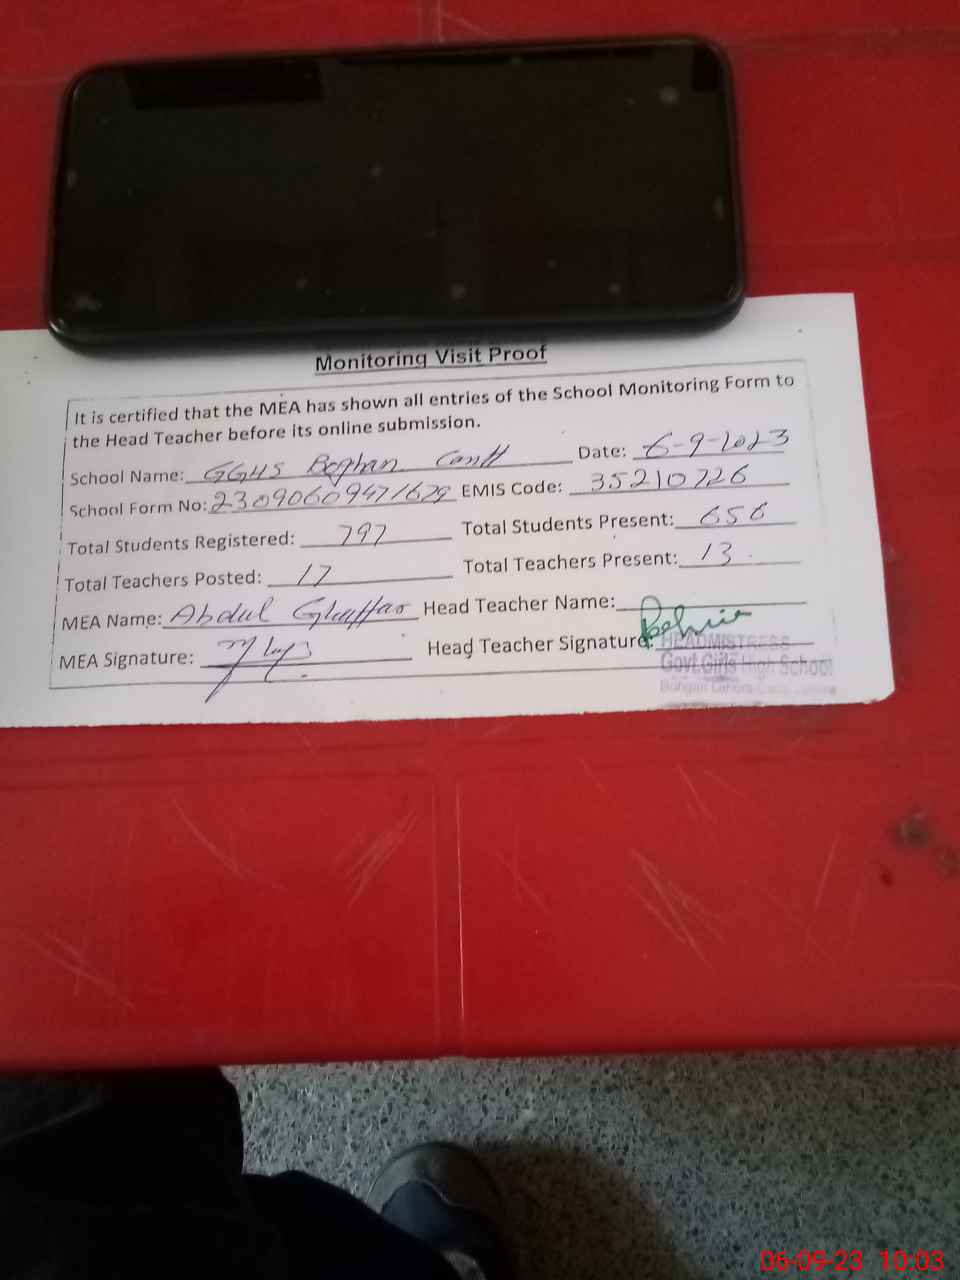 Monitoring Visit Proof
It is certified that the MEA has shown all entries of the School Monitoring Form to
the Head Teacher before its online submission.
School Name: GGHS Boghan Cantt Date: 6-9-2023
School Form No: 23090609471679 EMIS Code: 35210726
Total Students Registered: 797 Total Students Present: 656
Total Teachers Posted: 17 Total Teachers Present: 13
MEA Name: Abdul Ghaffar Head Teacher Name:
MEA Signature: Head Teacher Signature:
HEADMISTRESS
Govt.Girls High School
Lahore
06-09-23 10:03